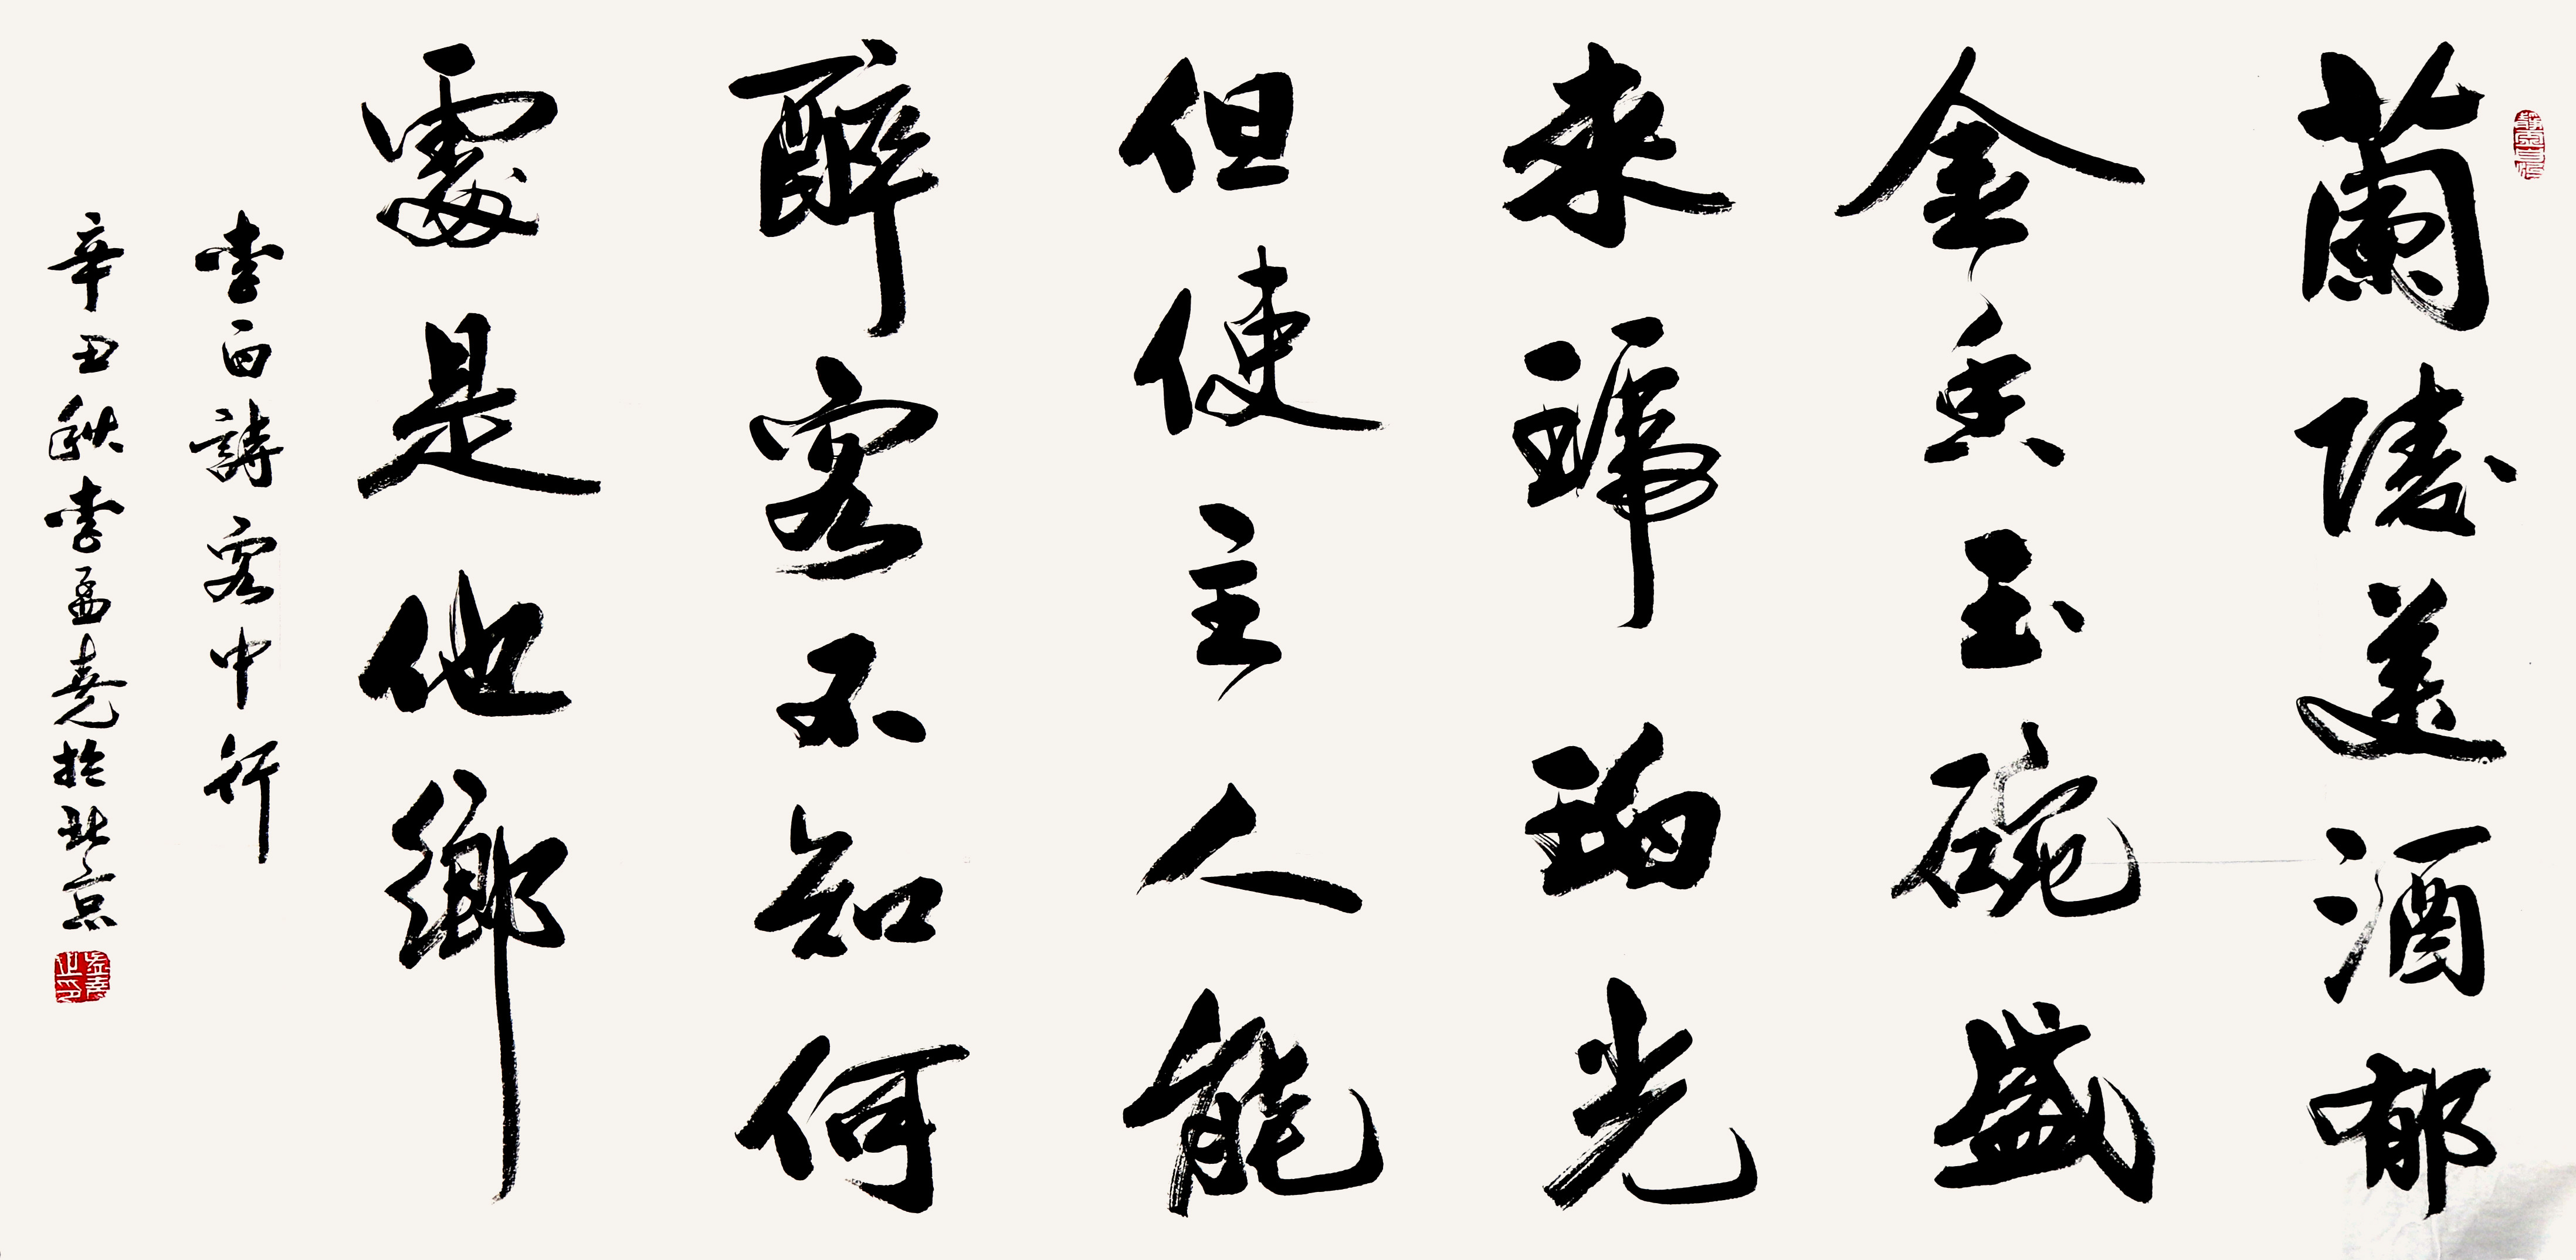 蘭陵美酒郁
金香玉碗盛
来琥珀光
但使主人能
醉客不知何
處是他鄉
李白詩客中行
辛丑秋李孟堯於北京